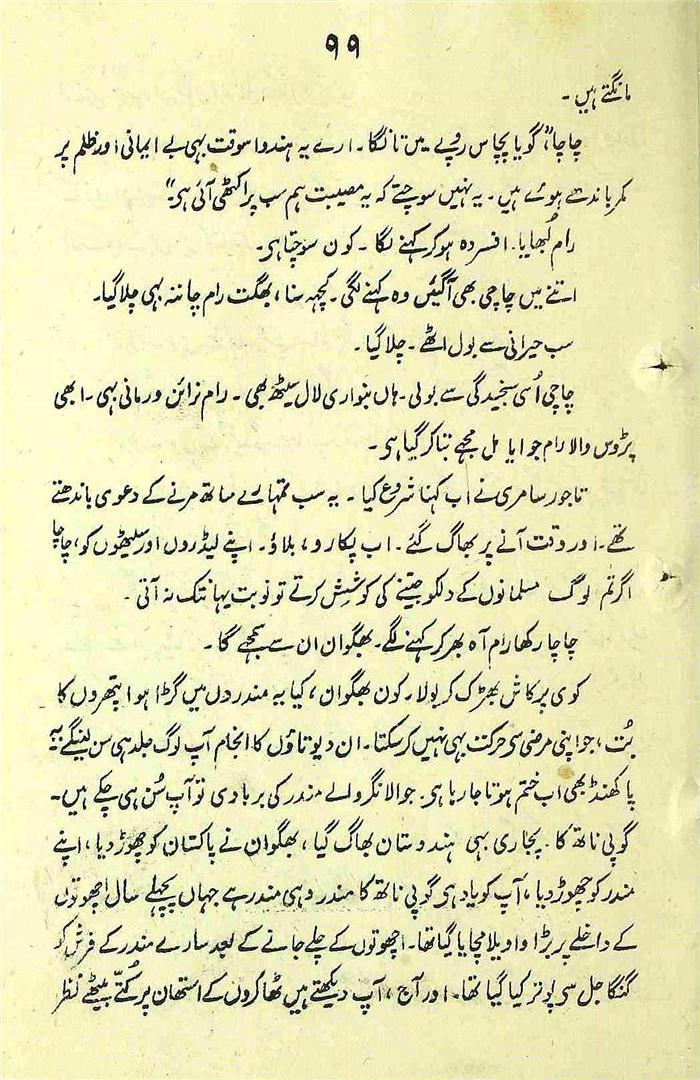 ۹۹
مانگتے ہیں ۔
چاچا، گویا پچاس روپے میں تانگا ۔ ارے یہ ہندو اسوقت بہی بے ایمانی اور ظلم پر
کمر باندھے ہوئے ہیں ۔ یہ نہیں سوچتے کہ یہ مصیبت ہم سب پر اکٹھی آئی ہی ۔"
رام لُبھایا ۔ افسردہ ہو کر کہنے لگا ۔ کون سوچتا ہی ۔
اتنے میں چاچی بھی آگئیں وہ کہنے لگی ۔ کچہہ سنا ، بھگت رام چاننہ بہی چلا گیا ۔
سب حیرانی سے بول اٹھے ۔ چلا گیا ۔
چاچی اُسی سنجیدگی سے بولی ۔ ہاں بنواری لال سیٹھ بھی ۔ رام نرائن ورمانی بہی ۔ ابھی
پڑوس والا رام جوایا مل مجھے بتا کر گیا ہی ۔
تاجور سامری نے اب کہنا شروع کیا ۔ یہ سب تمہارے ساتھ مرنے کے دعوی باندھتے
تھے ۔ اور وقت آنے پر بھاگ گئے ۔ اب پکارو ، بلاؤ ۔ اپنے لیڈروں اور سیٹھوں کو ، چاچا
اگر تم لوگ مسلمانوں کے دلکو جیتنے کی کوشش کرتے تو نوبت یہانتک نہ آتی ۔
چاچا رکھا رام آہ بھر کر کہنے لگے ۔ بھگوان ان سے سمجھے گا ۔
کوی پرکاش بھڑک کر بولا ۔ کون بھگوان ، کیا یہ مندروں میں گڑا ہوا پتھروں کا
بُت ، جو اپنی مرضی سی حرکت بہی نہیں کر سکتا ۔ ان دیوتاؤں کا انجام آپ لوگ جلد ہی سن لینگے یہ
پاکھنڈ بھی اب ختم ہوتا جا رہا ہی ۔ جوالا نگر والے مندر کی بربادی تو آپ سُن ہی چکے ہیں ۔
گوپی ناتھ کا ۔ پجاری بہی ہندوستان بھاگ گیا ، بھگوان نے پاکستان کو چھوڑ دیا ، اپنے
مندر کو چھوڑ دیا ، آپ کو یاد ہی گوپی ناتھ کا مندر وہی مندر ہے جہاں پچھلے سال اچھوتوں
کے داخلے پر بڑا واویلا مچایا گیا تھا ۔ اچھوتوں کے چلے جانے کے بعد سارے مندر کے فرش کو
گنگا جل سی پوتر کیا گیا تھا ۔ اور آج ، آپ دیکھتے ہیں ٹھاکروں کے استھان پر کُتّے بیٹھے نظر